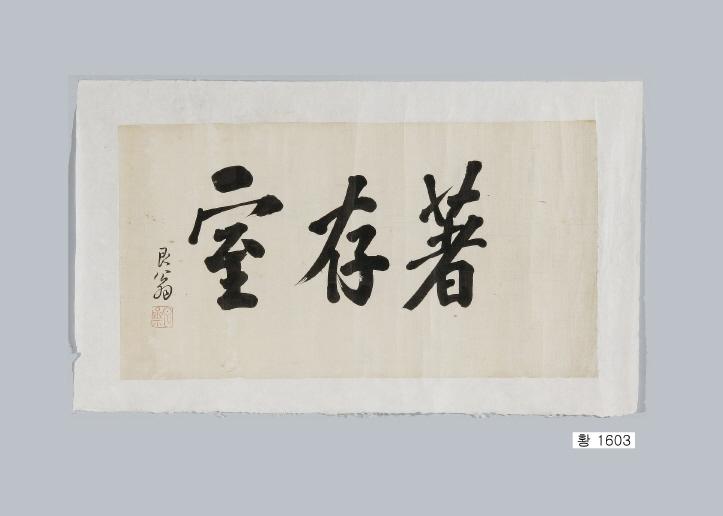 著存室
艮翁
황 1603